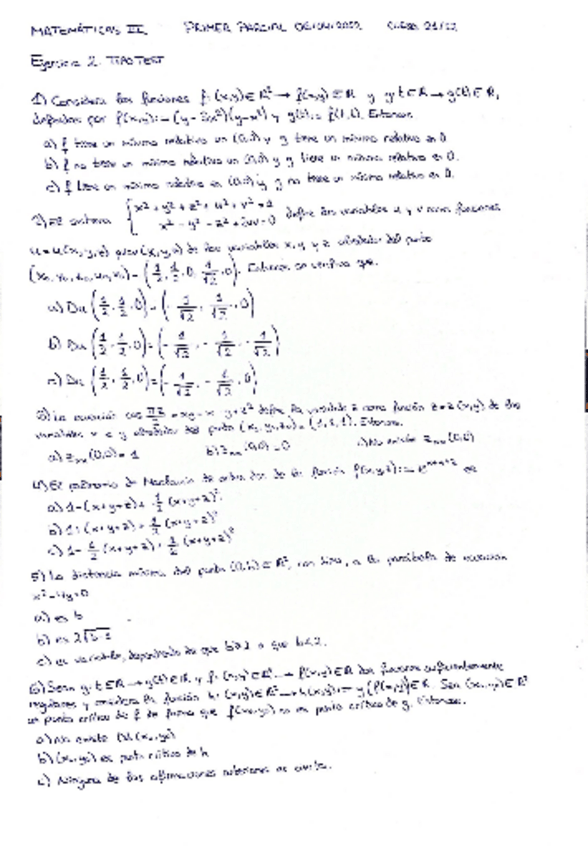 MATEMÁTICAS III PRIMER PARCIAL 06/04/2022 CURSO 21/22
Ejercicio 2. TIPO TEST
1) Considera las funciones f: (x,y)∈R² → f(x,y)∈R y g: t∈R → g(t)∈R,
definidas por f(x,y):=(y- x²)(y-x²) y g(t):= f(t,t). Entonces
a) f tiene un mínimo relativo en (0,0) y g tiene un mínimo relativo en 0
b) f no tiene un mínimo relativo en (0,0) y g tiene un mínimo relativo en 0.
c) f tiene un mínimo relativo en (0,0) y g no tiene un mínimo relativo en 0.
2) El sistema { x²+y²+z²+u²+v²=1
x²-y²-z²+uv=0 define las variables u y v como funciones
u=u(x,y,z) y v=v(x,y,z) de las variables x, y y z alrededor del punto
(x₀,y₀,z₀,u₀,v₀)=(1/2, 1/2, 0, 1/√2, 0). Entonces se verifica que:
a) Du(1/2, 1/2, 0)=(- 1/√2, 1/√2, 0)
b) Du(1/2, 1/2, 0)=(- 1/√2, - 1/√2, - 1/√2)
c) Du(1/2, 1/2, 0)=(- 1/√2, - 1/√2, 0)
3) La ecuación cos πz/2 define la variable z como función z=z(x,y) de dos
variables x e y alrededor del punto (x₀,y₀,z₀)=(1,1,1). Entonces
a) zxx(0,0)=1 b) zxx(0,0)=0 c) No existe zxx(0,0)
4) El polinomio de Maclaurin de orden dos de la función f(x,y,z):=e^(x+y+z) es
a) 1-(x+y+z)+ 1/2 (x+y+z)²
b) 1+(x+y+z)+ 1/2 (x+y+z)²
c) 1- 1/2 (x+y+z)+ 1/2 (x+y+z)²
5) La distancia mínima del punto (0,b)∈R², con b>0, a la parábola de ecuación
x²-4y=0
a) es b
b) es 2√b-1
c) es variable, dependiendo de que b≥2 o que b<2.
6) Sean g: t∈R → g(t)∈R y f: (x,y)∈R² → f(x,y)∈R dos funciones suficientemente
regulares y considera la función h: (x,y)∈R² → h(x,y):= g(f(x,y))∈R. Sea (x₀,y₀)∈R²
un punto crítico de f de forma que f(x₀,y₀) no es punto crítico de g. Entonces.
a) No existe Dh(x₀,y₀)
b) (x₀,y₀) es punto crítico de h
c) Ninguna de las afirmaciones anteriores es cierta.